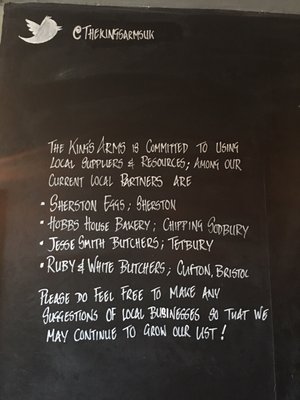 @THEKINGSARMSUK
THE KING'S ARMS IS COMMITTED TO USING
LOCAL SUPPLIERS & RESOURCES; AMONG OUR
CURRENT LOCAL PARTNERS ARE
• SHERSTON EGGS; SHERSTON
• HOBBS HOUSE BAKERY; CHIPPING SODBURY
• JESSE SMITH BUTCHERS; TETBURY
• RUBY & WHITE BUTCHERS; CLIFTON, BRISTOL
PLEASE DO FEEL FREE TO MAKE ANY
SUGGESTIONS OF LOCAL BUSINESSES SO THAT WE
MAY CONTINUE TO GROW OUR LIST!